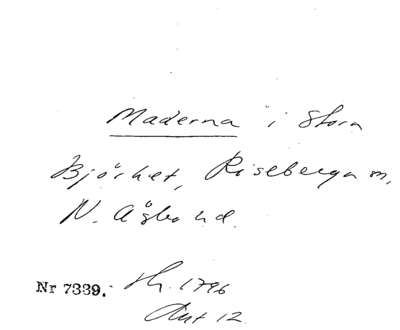 Maderna i Stora
Björket, Riseberga sn,
N. Åsbo hd.
Nr 7339. Sh. 1796
Akt 12.